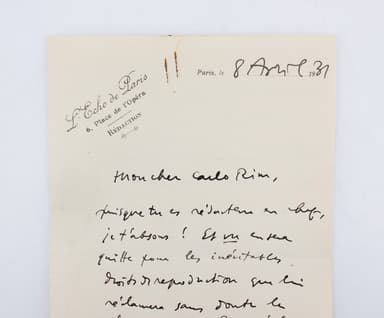 L'Echo de Paris
6, Place de l'Opéra
RÉDACTION
Paris, le 8 Avril 1931
Mon cher Carlo Rim,
puisque tu es rédacteur en chef,
je t'absous ! Et VU en sera
quitte pour les inévitables
droits de reproduction que lui
réclamera sans doute la